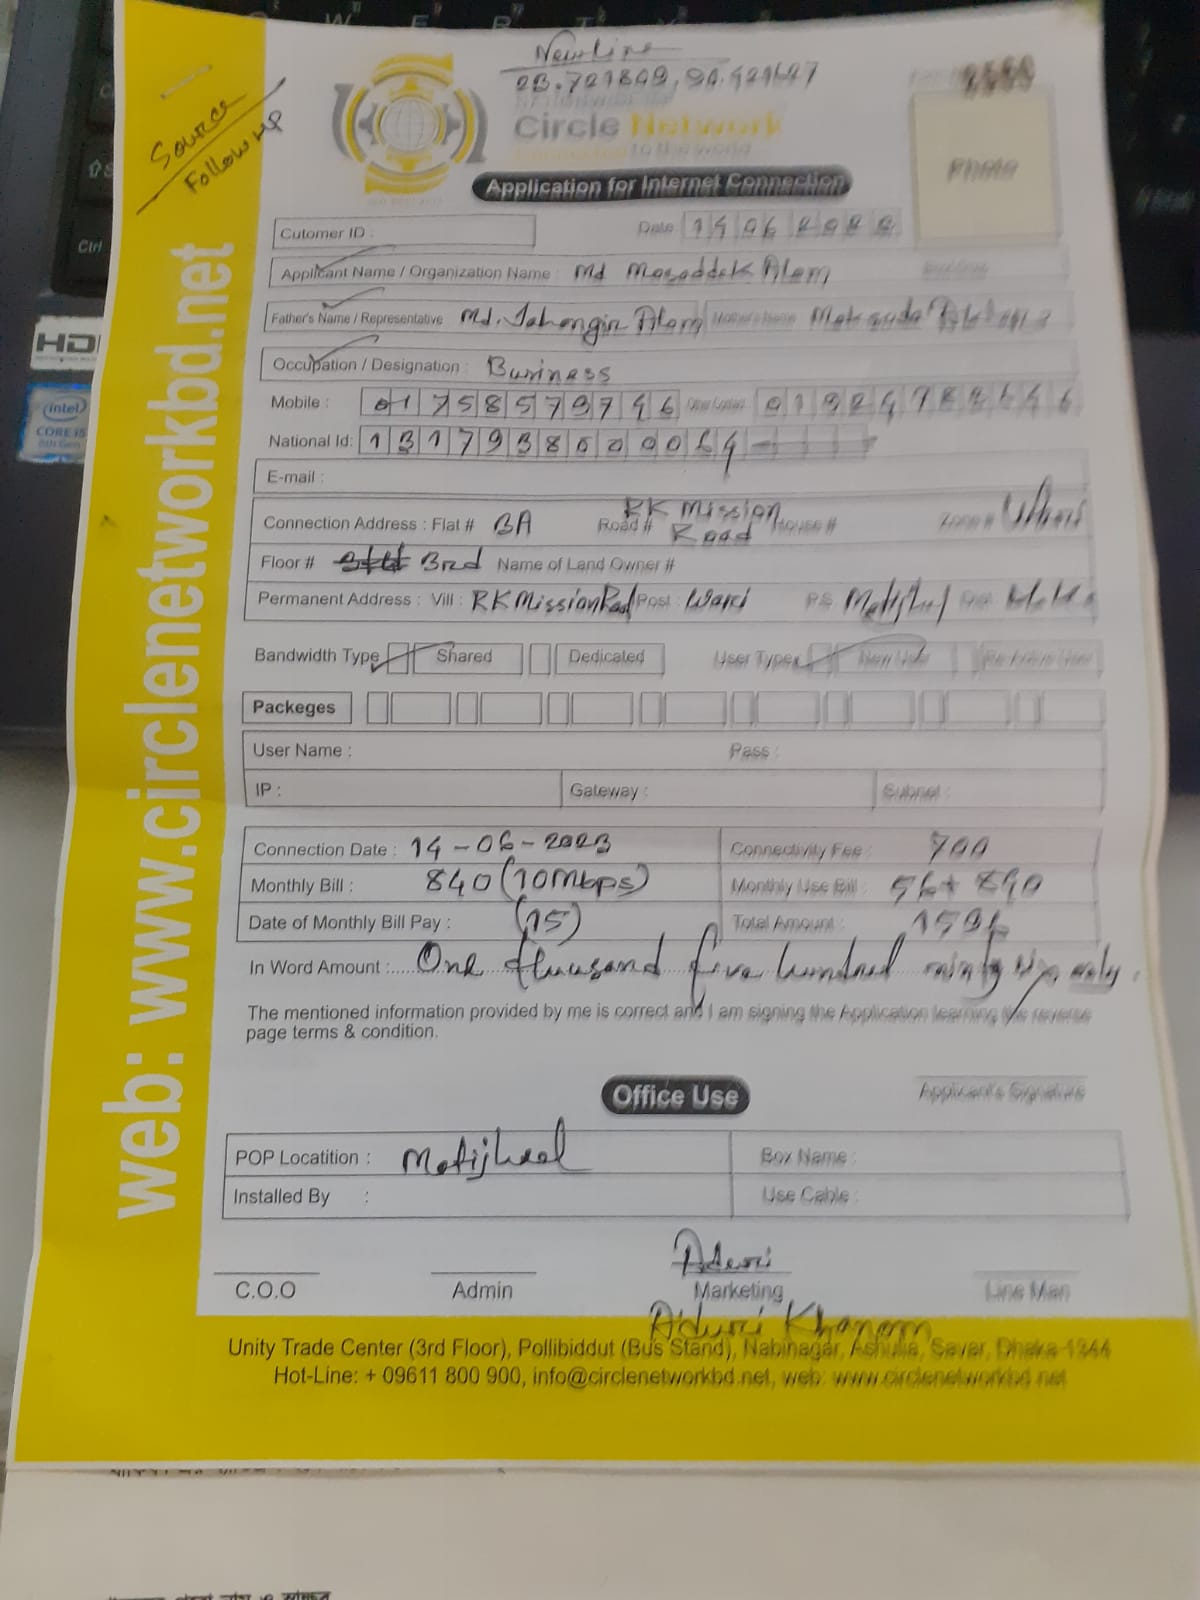 Source
Follow up
New Line
Circle Network
to the world
Application for Internet Connection
Photo
web: www.circlenetworkbd.net
Cutomer ID :
Date 14 06 2023
Applicant Name / Organization Name : Md Mosaddek Alam
Father's Name / Representative Md. Jahangir Alam Mother's Name
Occupation / Designation : Business
Mobile : 01758579746
National Id:
E-mail :
Connection Address : Flat # BA Road # RK Mission Road House # Zone #
Floor # 3rd Name of Land Owner #
Permanent Address : Vill : RK Mission Rod Post : Wari P.S
Bandwidth Type Shared Dedicated User Type New User
Packeges
User Name : Pass :
IP : Gateway : Subnet :
Connection Date : 14-06-2023 Connectivity Fee : 700
Monthly Bill : 840 (10Mbps) Monthly Use Bill : 56+840
Date of Monthly Bill Pay : (15) Total Amount : 1596
In Word Amount : One thuusand five hundred ninty six only.
The mentioned information provided by me is correct and I am signing the Application learning the reverse
page terms & condition.
Applicant's Signature
Office Use
POP Locatition : Motijheel Box Name :
Installed By : Use Cable :
Aduri
C.O.O Admin Marketing Line Man
Aduri Khanam
Unity Trade Center (3rd Floor), Pollibiddut (Bus Stand), Nabinagar, Ashulia, Savar, Dhaka-1344
Hot-Line: + 09611 800 900, info@circlenetworkbd.net, web: www.circlenetworkbd.net